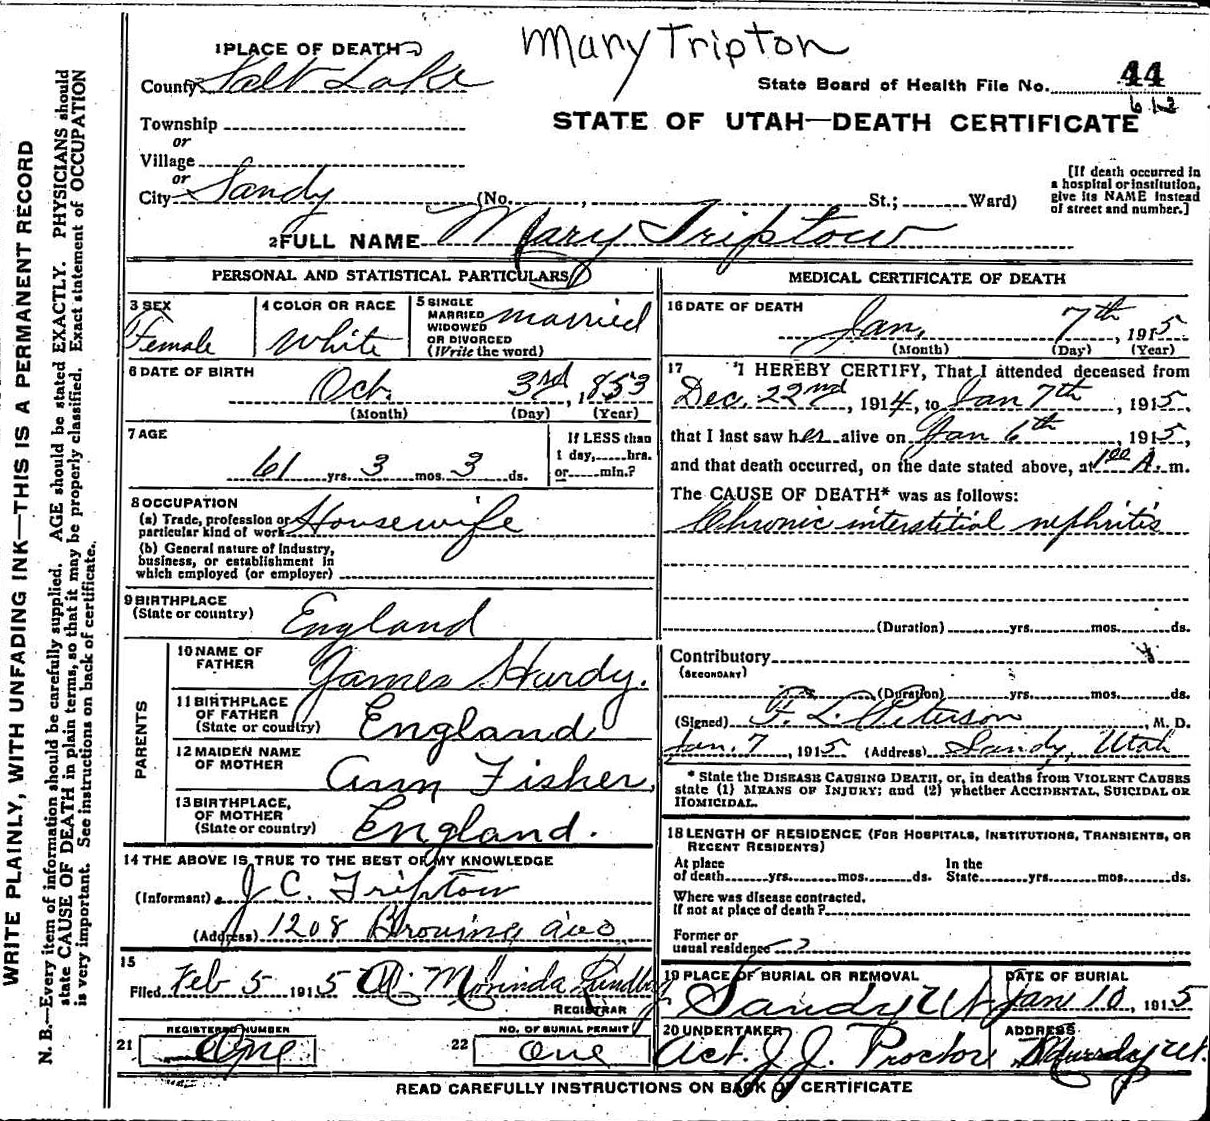 Mary Tripton
1 PLACE OF DEATH
County Salt Lake
State Board of Health File No. 44
612
STATE OF UTAH—DEATH CERTIFICATE
Township
or
Village
or
City Sandy (No. , St.; Ward)
[If death occurred in
a hospital or institution,
give its NAME instead
of street and number.]
2 FULL NAME Mary Triptow
PERSONAL AND STATISTICAL PARTICULARS
3 SEX
Female
4 COLOR OR RACE
White
5 SINGLE
MARRIED
WIDOWED
OR DIVORCED
(Write the word)
married
6 DATE OF BIRTH
Oct. 3rd, 1853
(Month) (Day) (Year)
7 AGE
61 yrs. 3 mos. 3 ds.
If LESS than
1 day, hrs.
or min.?
8 OCCUPATION
(a) Trade, profession or
particular kind of work Housewife
(b) General nature of industry,
business, or establishment in
which employed (or employer)
9 BIRTHPLACE
(State or country) England
PARENTS
10 NAME OF
FATHER James Hurdy.
11 BIRTHPLACE
OF FATHER
(State or country) England
12 MAIDEN NAME
OF MOTHER Ann Fisher,
13 BIRTHPLACE,
OF MOTHER
(State or country) England.
14 THE ABOVE IS TRUE TO THE BEST OF MY KNOWLEDGE
(Informant) J C. Triptow
(Address) 1208 Browing ave
15
Filed Feb 5 1915 Morinda
REGISTRAR
REGISTERED NUMBER
21 One
NO. OF BURIAL PERMIT
22 One
MEDICAL CERTIFICATE OF DEATH
16 DATE OF DEATH
Jan. 7th, 1915
(Month) (Day) (Year)
17 I HEREBY CERTIFY, That I attended deceased from
Dec. 22nd, 1914, to Jan 7th, 1915,
that I last saw her alive on Jan 6th, 1915,
and that death occurred, on the date stated above, at 1 00 A. m.
The CAUSE OF DEATH* was as follows:
Chronic interstitial nephritis
(Duration) yrs. mos. ds.
Contributory
(SECONDARY)
(Duration) yrs. mos. ds.
(Signed) F. L. Peterson, M. D.
Jan. 7, 1915 (Address) Sandy, Utah
* State the DISEASE CAUSING DEATH, or, in deaths from VIOLENT CAUSES
state (1) MEANS OF INJURY; and (2) whether ACCIDENTAL, SUICIDAL OR
HOMICIDAL.
18 LENGTH OF RESIDENCE (FOR HOSPITALS, INSTITUTIONS, TRANSIENTS, OR
RECENT RESIDENTS)
At place
of death yrs. mos. ds.
In the
State yrs. mos. ds.
Where was disease contracted,
If not at place of death?
Former or
usual residence
19 PLACE OF BURIAL OR REMOVAL
Sandy Ut
DATE OF BURIAL
Jan 10, 1915
20 UNDERTAKER
Act. J. J. Proctor
ADDRESS
Murrdy Ut.
READ CAREFULLY INSTRUCTIONS ON BACK OF CERTIFICATE
WRITE PLAINLY, WITH UNFADING INK—THIS IS A PERMANENT RECORD
N. B.—Every item of information should be carefully supplied. AGE should be stated EXACTLY. PHYSICIANS should
state CAUSE OF DEATH in plain terms, so that it may be properly classified. Exact statement of OCCUPATION
is very important. See instructions on back of certificate.